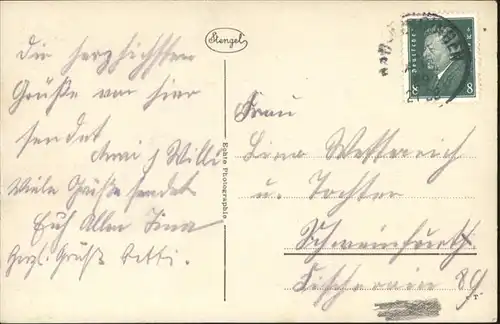 Stengel
Die herzlichsten
Grüße von hier
sendet
Anni & Willi
Viele Grüße sendet
Euch Allen Tina
Herzl. Grüße Betti.
Echte Photographie
Frau
Lina
u. Tochter
Schweinfurth
Fischerrain 89
Deutsches Reich
8 8